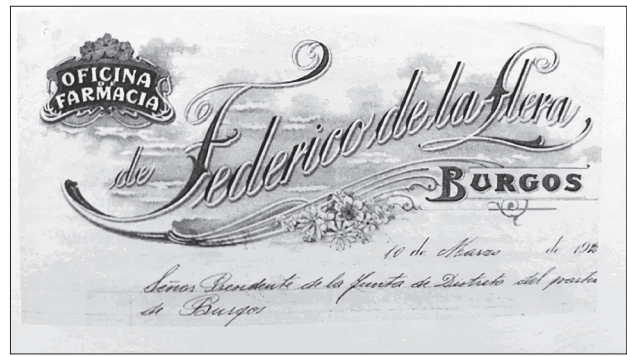 OFICINA
DE
FARMACIA
de Federico de la Llera
BURGOS
10 de Marzo de
Señor Presidente de la Junta de Distrito del
de Burgos